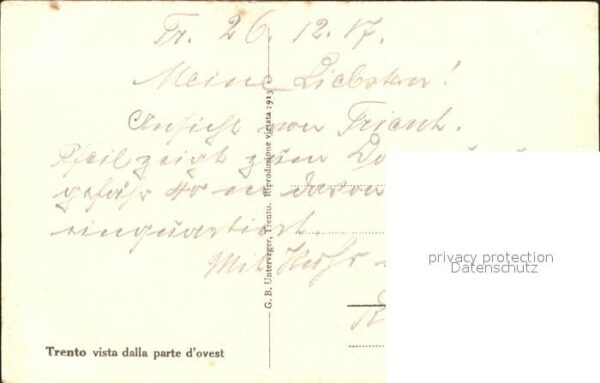 Tr. 26. 12. 17.
Meine Liebsten!
Ansicht von Trient.
Pfeil zeigt zum Do
gefähr 40 m davon
einquartiert.
Mit
G. B. Unterveger, Trento. Riproduzione vietata 1913
privacy protection
Datenschutz
Trento vista dalla parte d'ovest